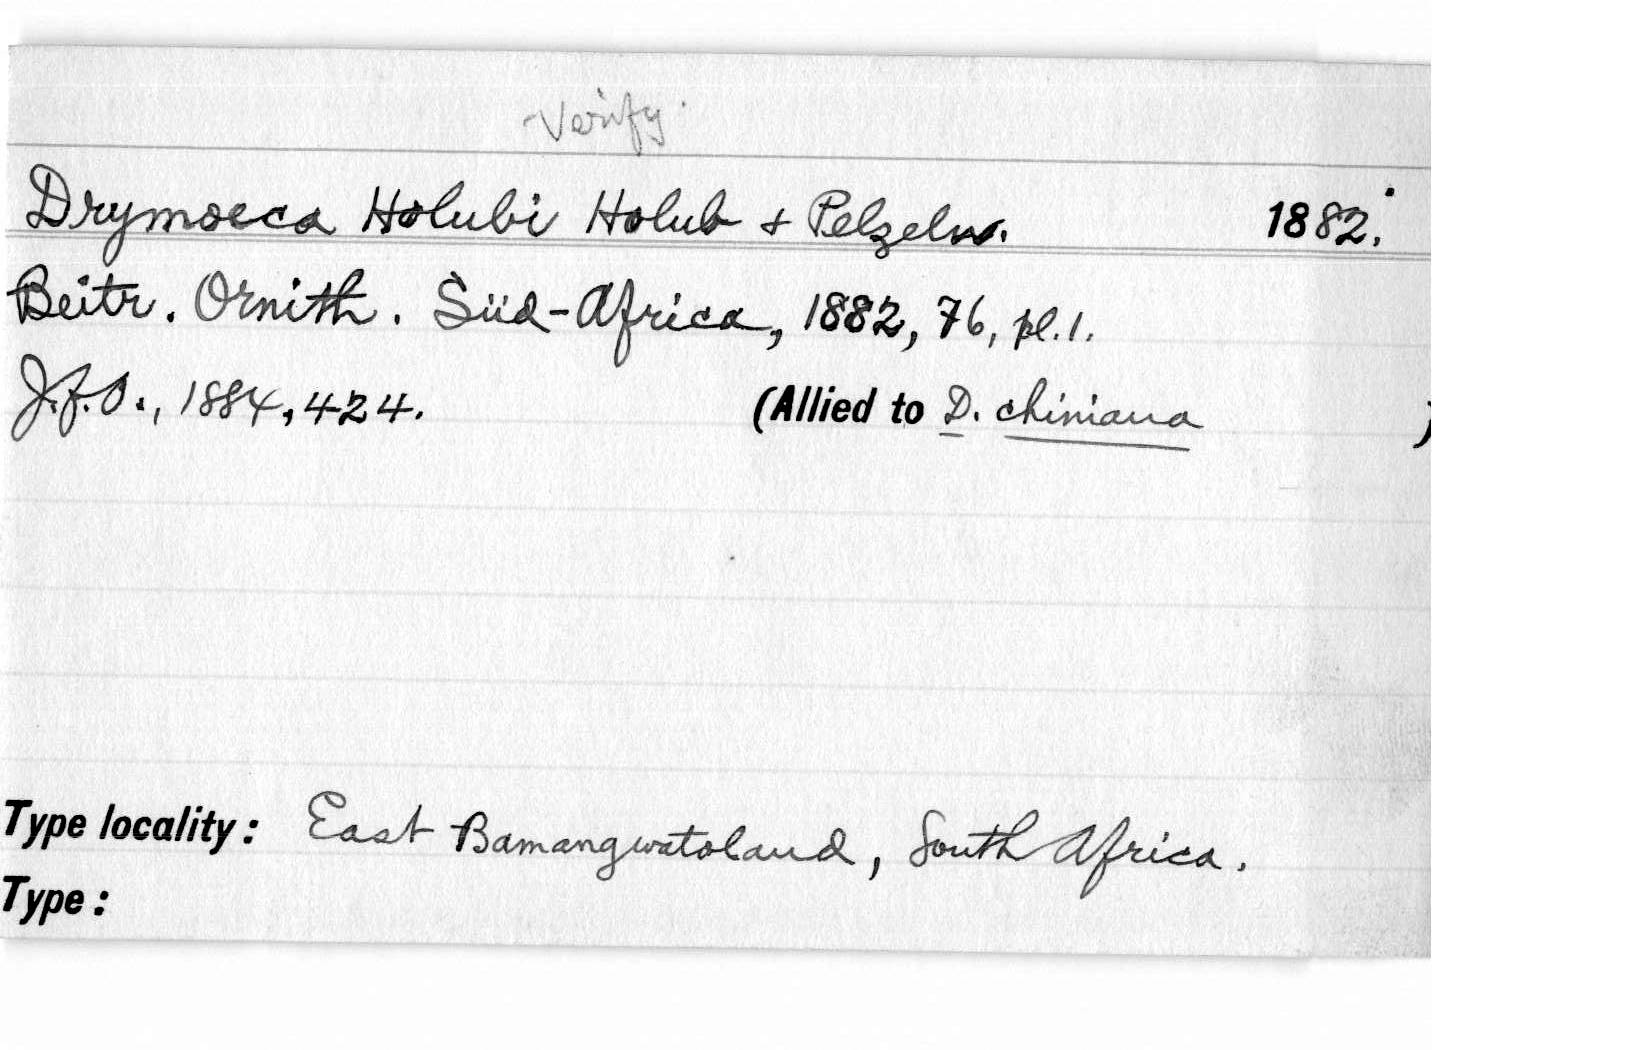 Verify.
Drymoeca Holubi Holub + Pelzeln. 1882.
Beitr. Ornith. Süd-Africa, 1882, 76, pl.1.
J.f.O., 1884, 424. (Allied to D. chiniana )
Type locality: East Bamangwatoland, South Africa.
Type: